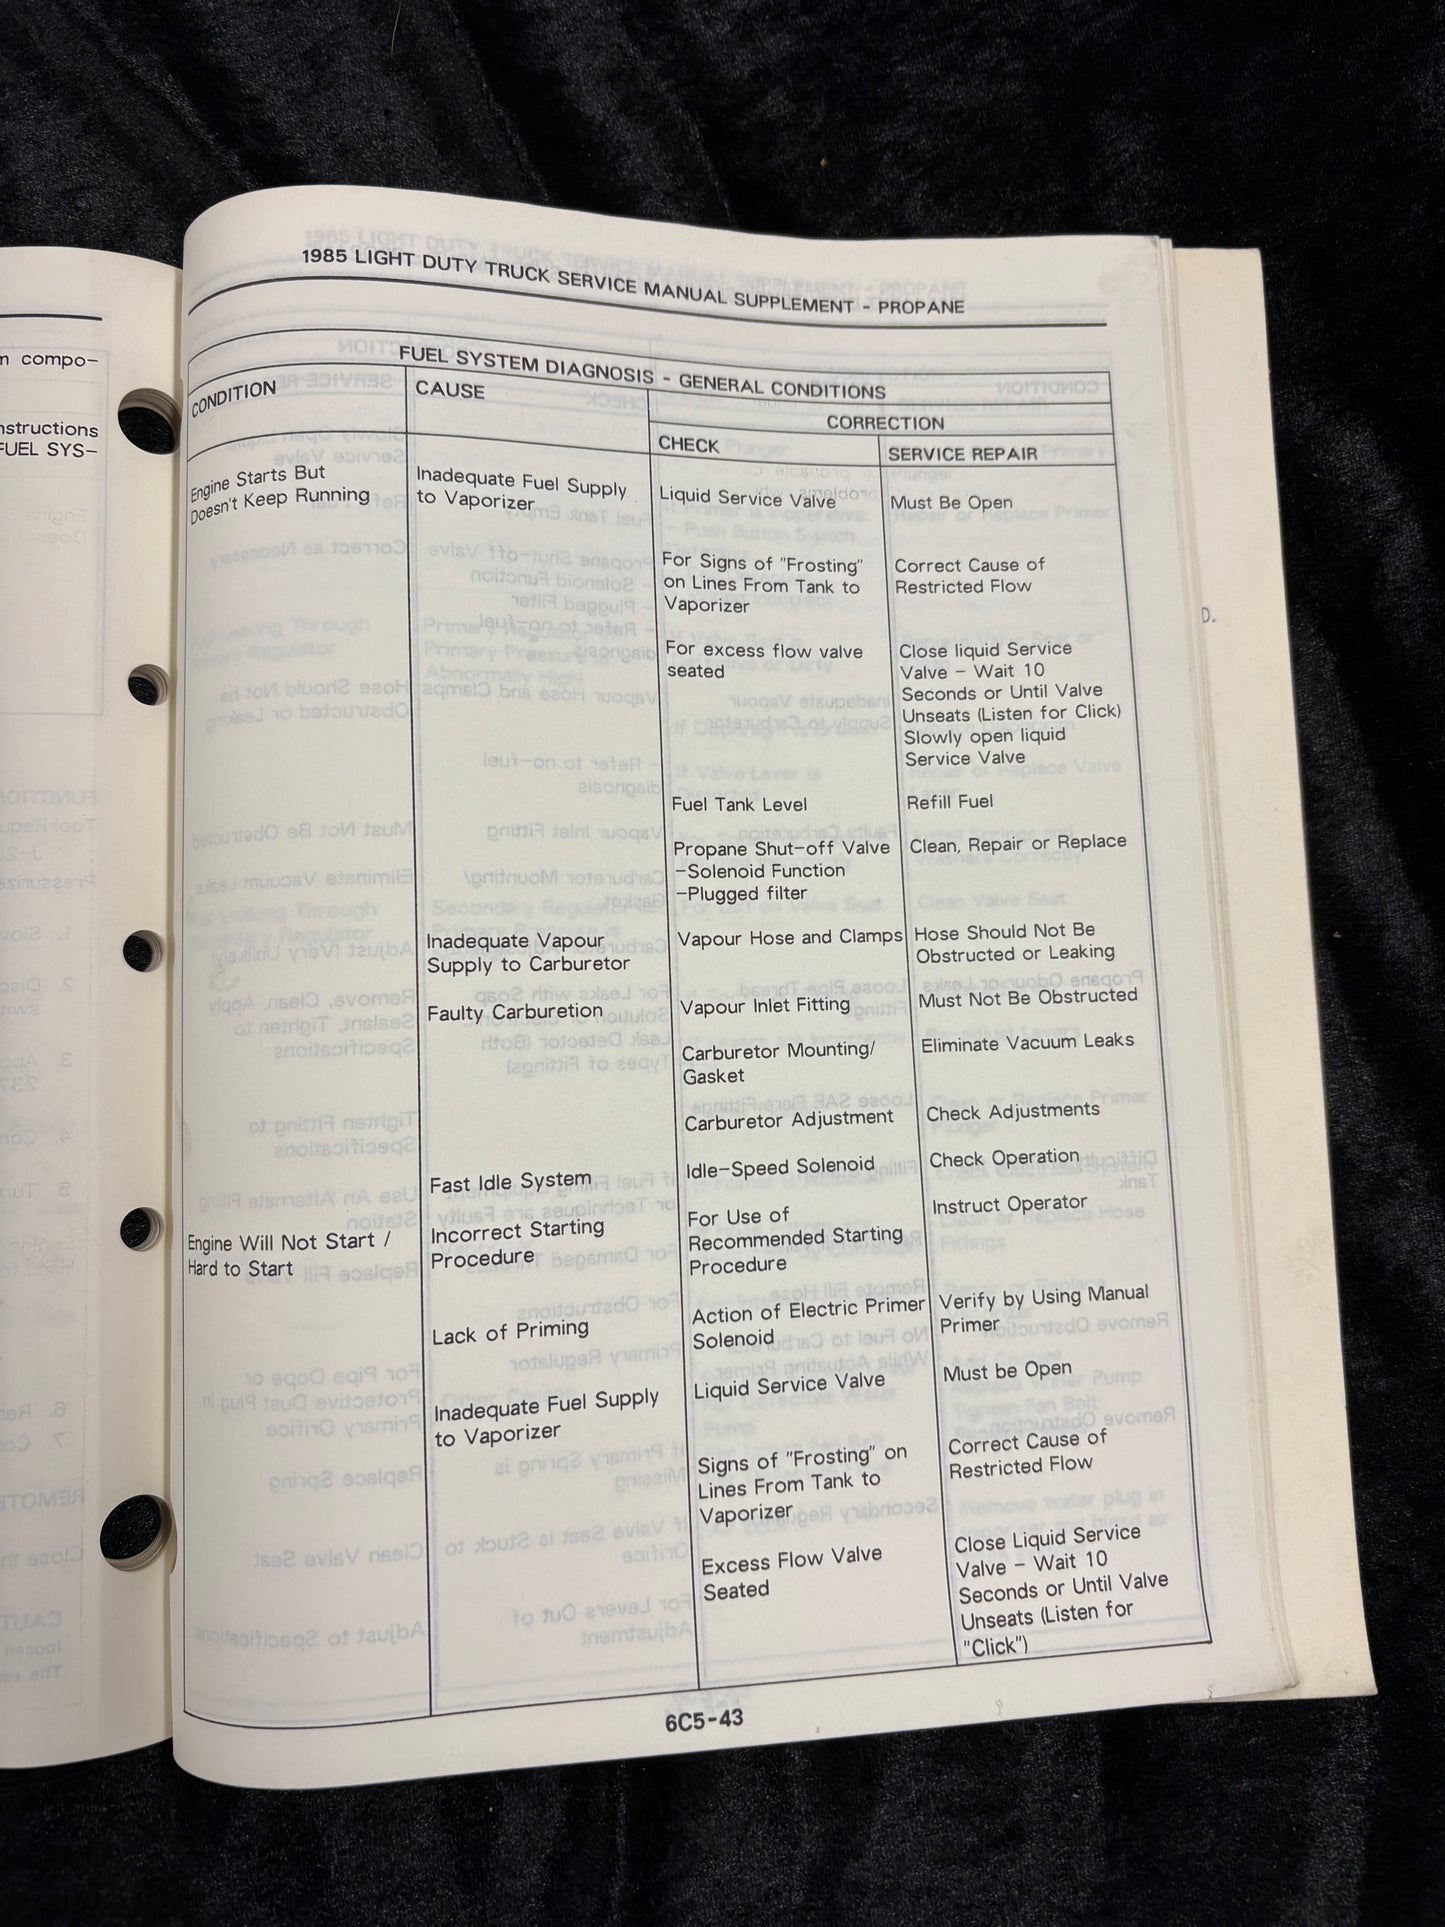 1985 LIGHT DUTY TRUCK SERVICE MANUAL SUPPLEMENT - PROPANE
FUEL SYSTEM DIAGNOSIS - GENERAL CONDITIONS
CONDITION
CAUSE
CORRECTION
CHECK
SERVICE REPAIR
Engine Starts But
Doesn't Keep Running
Inadequate Fuel Supply
to Vaporizer
Liquid Service Valve
Must Be Open
For Signs of "Frosting"
on Lines From Tank to
Vaporizer
Correct Cause of
Restricted Flow
For excess flow valve
seated
Close liquid Service
Valve - Wait 10
Seconds or Until Valve
Unseats (Listen for Click)
Slowly open liquid
Service Valve
Fuel Tank Level
Refill Fuel
Propane Shut-off Valve
-Solenoid Function
-Plugged filter
Clean, Repair or Replace
Inadequate Vapour
Supply to Carburetor
Vapour Hose and Clamps
Hose Should Not Be
Obstructed or Leaking
Faulty Carburetion
Vapour Inlet Fitting
Must Not Be Obstructed
Carburetor Mounting/
Gasket
Eliminate Vacuum Leaks
Carburetor Adjustment
Check Adjustments
Fast Idle System
Idle-Speed Solenoid
Check Operation
Engine Will Not Start /
Hard to Start
Incorrect Starting
Procedure
For Use of
Recommended Starting
Procedure
Instruct Operator
Lack of Priming
Action of Electric Primer
Solenoid
Verify by Using Manual
Primer
Inadequate Fuel Supply
to Vaporizer
Liquid Service Valve
Must be Open
Signs of "Frosting" on
Lines From Tank to
Vaporizer
Correct Cause of
Restricted Flow
Excess Flow Valve
Seated
Close Liquid Service
Valve - Wait 10
Seconds or Until Valve
Unseats (Listen for
"Click")
6C5-43
compo-
nstructions
FUEL SYS-
D.